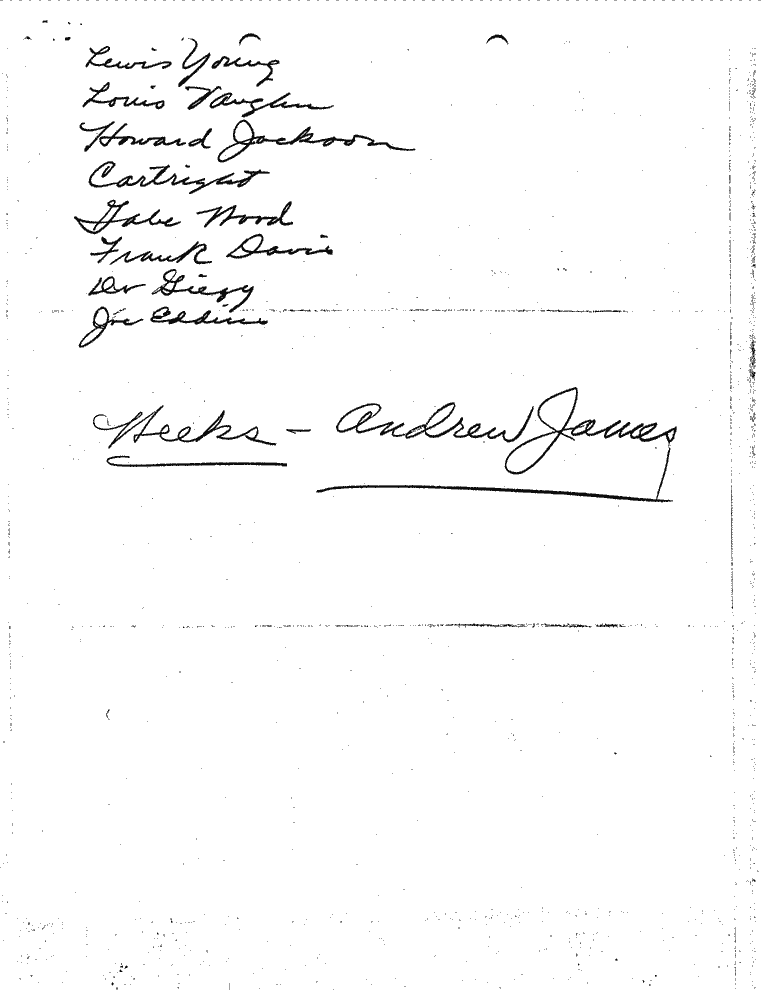 Lewis Young
Louis Vaughn
Howard Jackson
Cartright
Gabe Wood
Frank Davis
Dr Giezy
Joe Eddins
Weeks - Andrew James